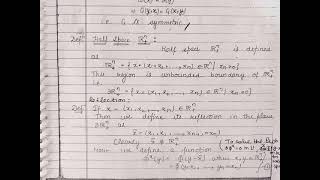 ⇒ G(y,x) = G(x,y)
i.e. G is symmetric.
Defⁿ Half Space ℝⁿ₊
Half space ℝⁿ₊ is defined
as
ℝⁿ₊ = { x = (x₁, x₂, ..., xₙ) ∈ ℝⁿ | xₙ > 0 }
This region is unbounded boundary of ℝⁿ₊
i.e.
∂ℝⁿ₊ = { x = (x₁, x₂, ..., xₙ) ∈ ℝⁿ | xₙ = 0 }
Reflection:
Def If x = (x₁, x₂, ..., xₙ) ∈ ℝⁿ₊
Then we define its reflection in the plane
∂ℝⁿ₊ as
x̃ = (x₁, x₂, ..., xₙ₋₁, -xₙ)
Clearly x̃ ∉ ℝⁿ₊
To solve the
Now we define a function
φˣ(y) = φ(y-x̃) when x, y ∈ ℝⁿ₊